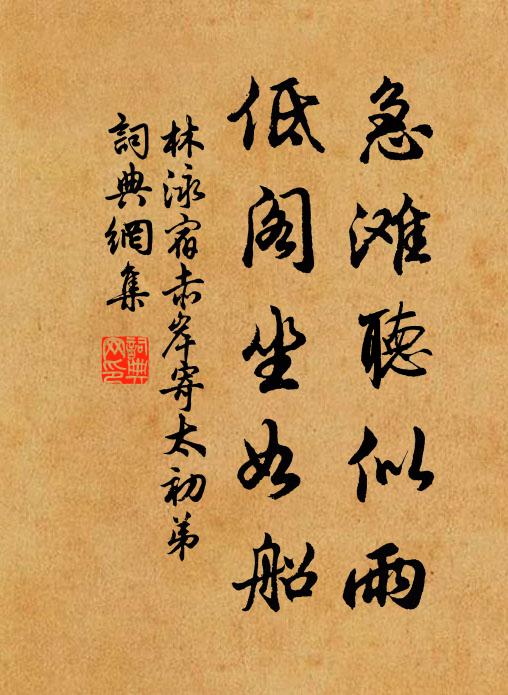 急滩聽似雨
低阁坐如船
林泳宿赤岸寄太初弟
詞典網集
詞典網印